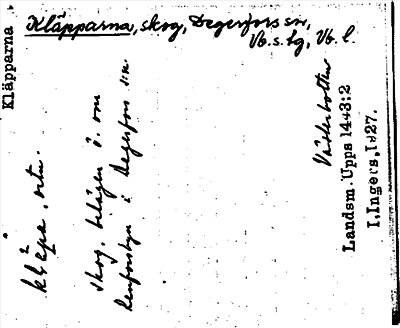 Kläpparna
Kläpparna, skog, Degerfors sn,
Vb. s. lg, Vb. l.
kläpa, ortn.
skog, belägen ö. om
Renforsbyn i Degerfors sn.
Västerbotten
Landsm. Upps 1443:2
I. Ingers, 1927.